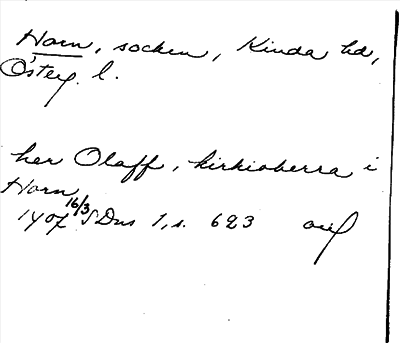 Horn, socken, Kinda hd,
Österg. l.
her Olaff, kirkioherra i
Horn
1407 16/3 SDns 1, s. 623